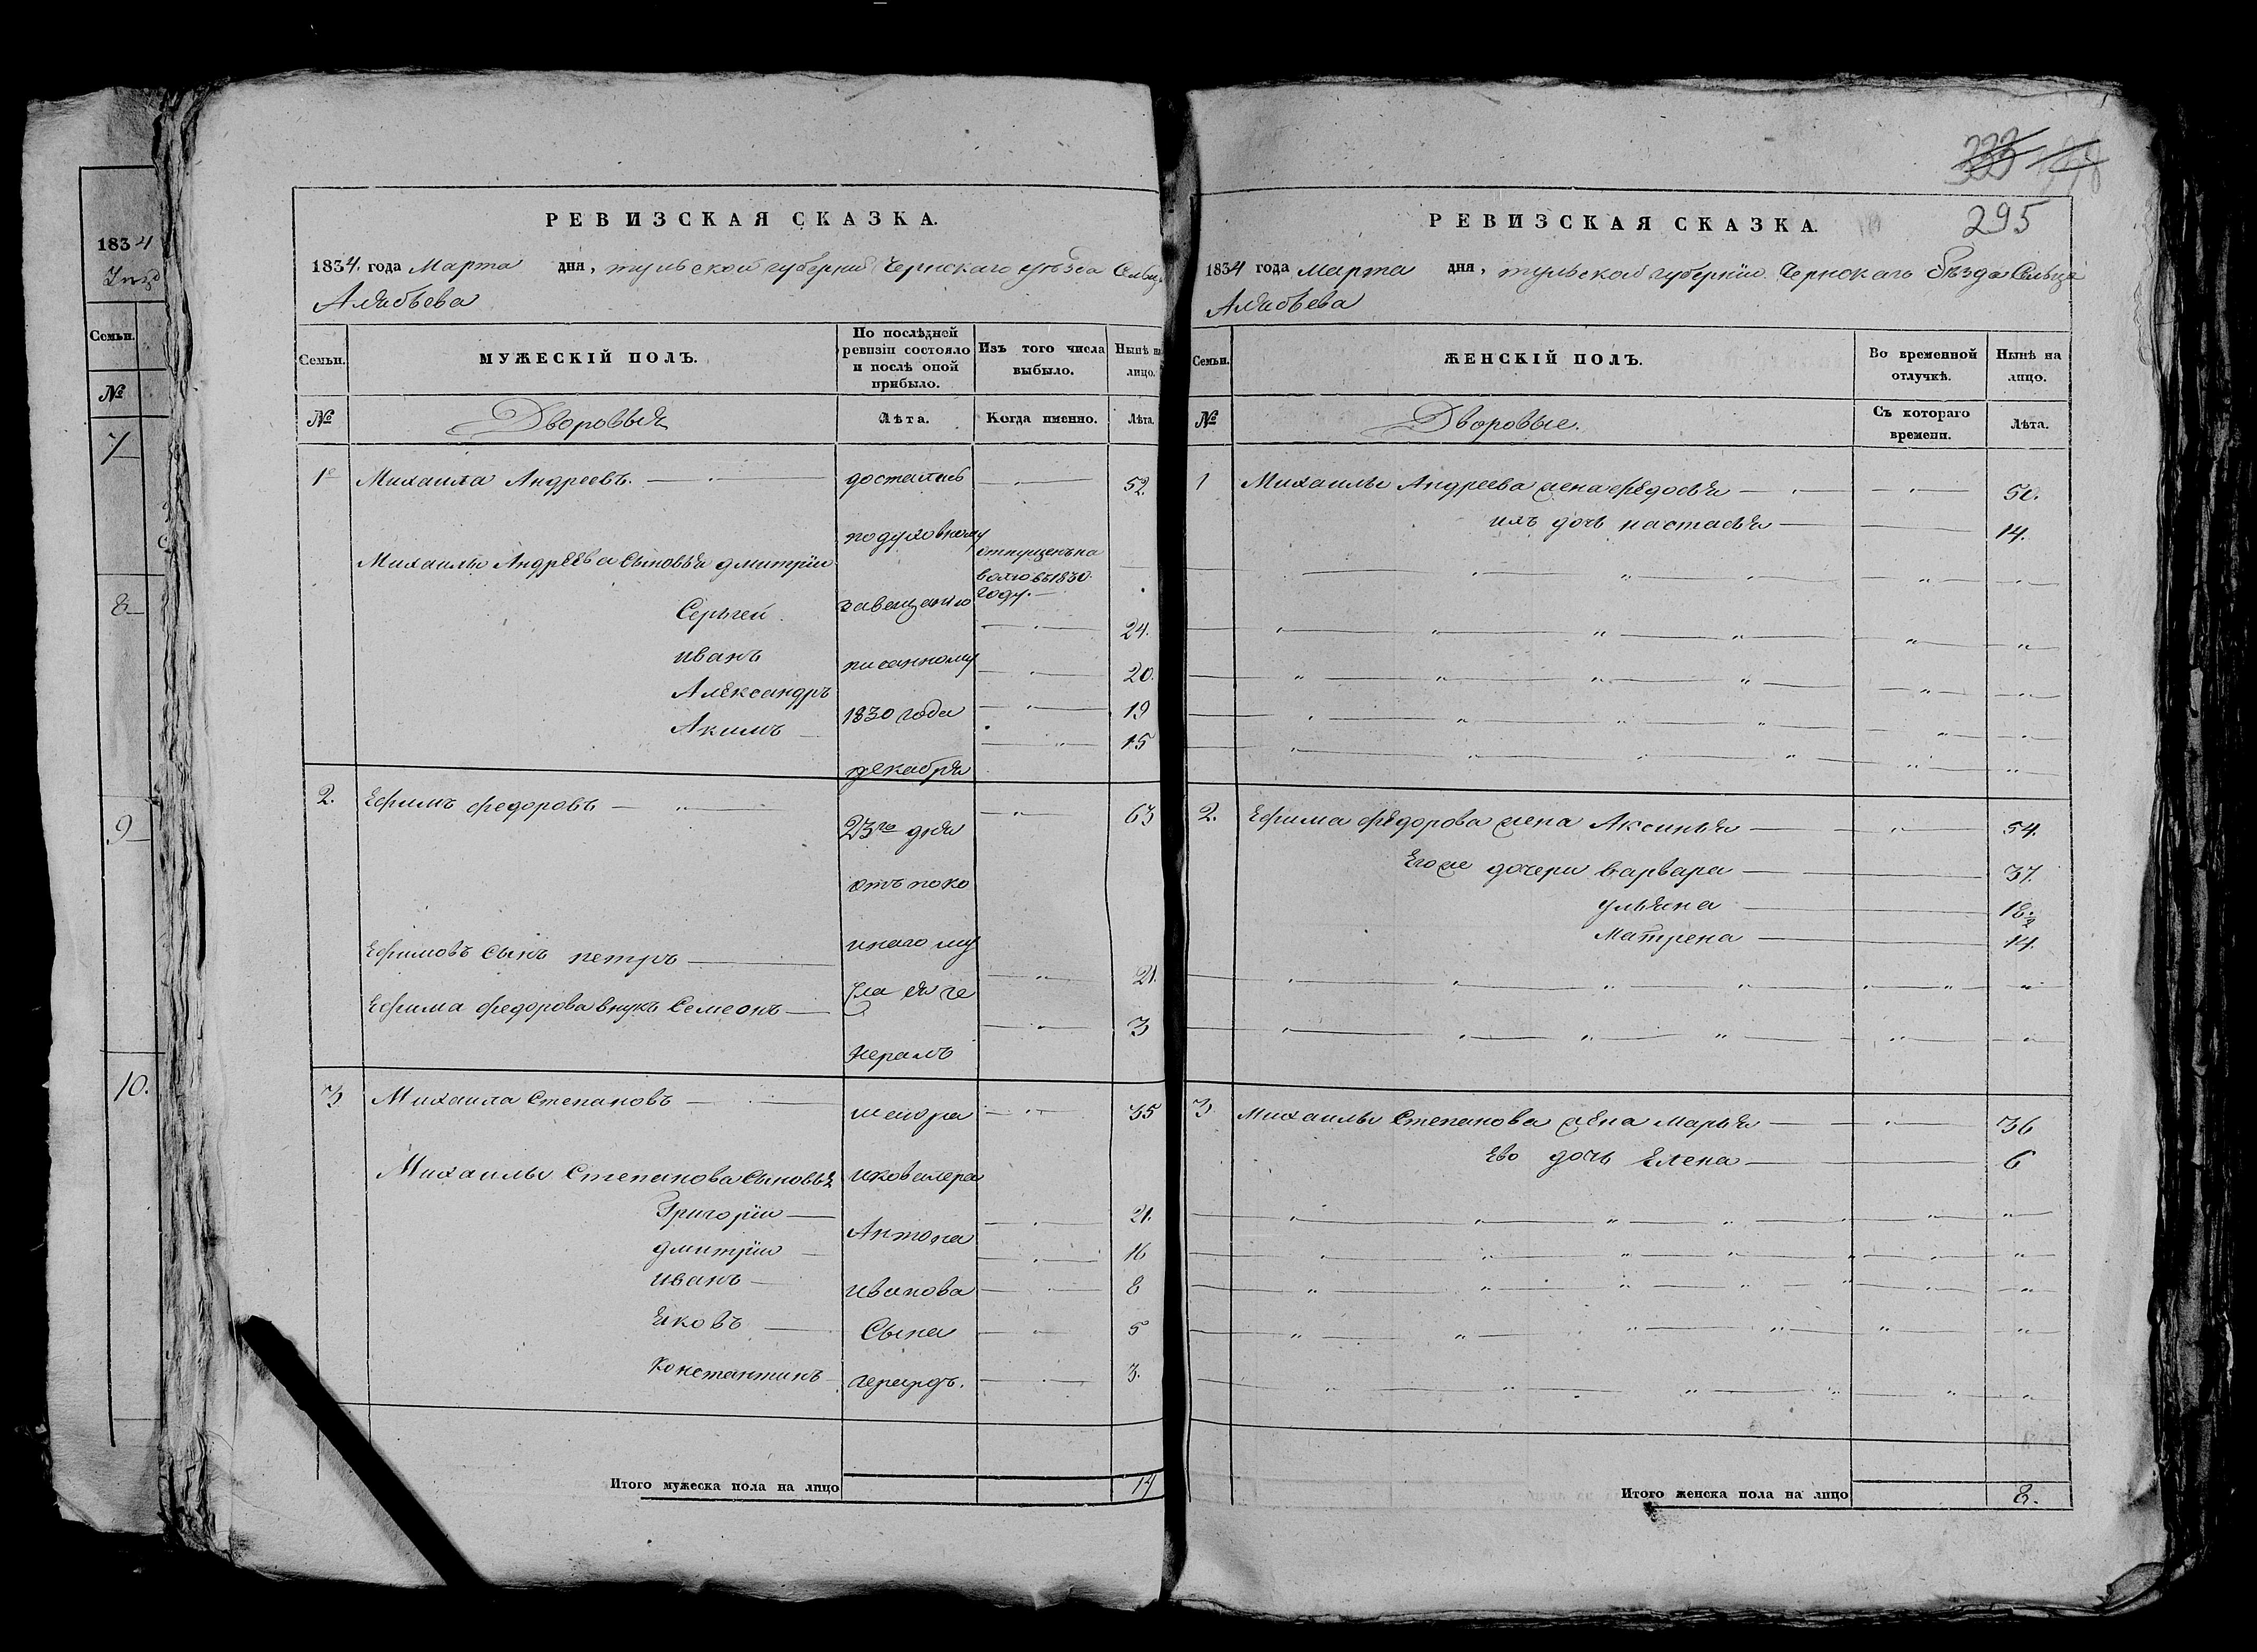 1834
Семьи.
№
7
8
9
10.
РЕВИЗСКАЯ СКАЗКА.
1834 года Марта дня, тульской губернии Чернскаго уѣзда Сельца
Алябьева
Семьи.
МУЖЕСКІЙ ПОЛЪ.
По послѣдней ревизіи состояло и послѣ оной прибыло.
Изъ того числа выбыло.
Нынѣ на лицо.
№
Дворовыя
Лѣта.
Когда именно.
Лѣта.
1 Михаила Андреевъ. достались 52.
по духовному
Михаилы Андреева Сыновья дмитріи отпущенъ на
волю въ 1830
году.
Сергей завещанию 24.
иванъ писанному 20.
Александръ 1830 года 19
Акимъ 15
декабря
2. Ефимъ федоровъ 63
23го дня
отъ поко
инаго му
Ефимовъ Сынъ петръ 21.
жа ея ге
Ефима федорова внукъ Семеонъ 3
нералъ
3 Михаила Степановъ маиора 35
Михаилы Степанова Сыновья икавалера
Григоріи 21.
Антона
дмитріи 16
иванъ иванова 8
яковъ Сына 5
Константинъ герардъ. 3.
Итого мужеска пола на лицо 14
333
295
РЕВИЗСКАЯ СКАЗКА.
1834 года Марта дня, тульской губерніи Чернскаго уѣзда Сельца
Алябьева
Семьи.
ЖЕНСКІЙ ПОЛЪ.
Во временной отлучкѣ.
Нынѣ на лицо.
№
Дворовые.
Съ котораго времени.
Лѣта.
1 Михаилы Андреева жена федосья 50.
ихъ дочь настасья 14.
2. Ефима федорова жена Аксинья 54.
Егоже дочери варвара 37.
ульяна 18.
Матрена 14.
3 Михаилы Степанова жена Марья 36
Ево дочь Елена 6
Итого женска пола на лицо 8.